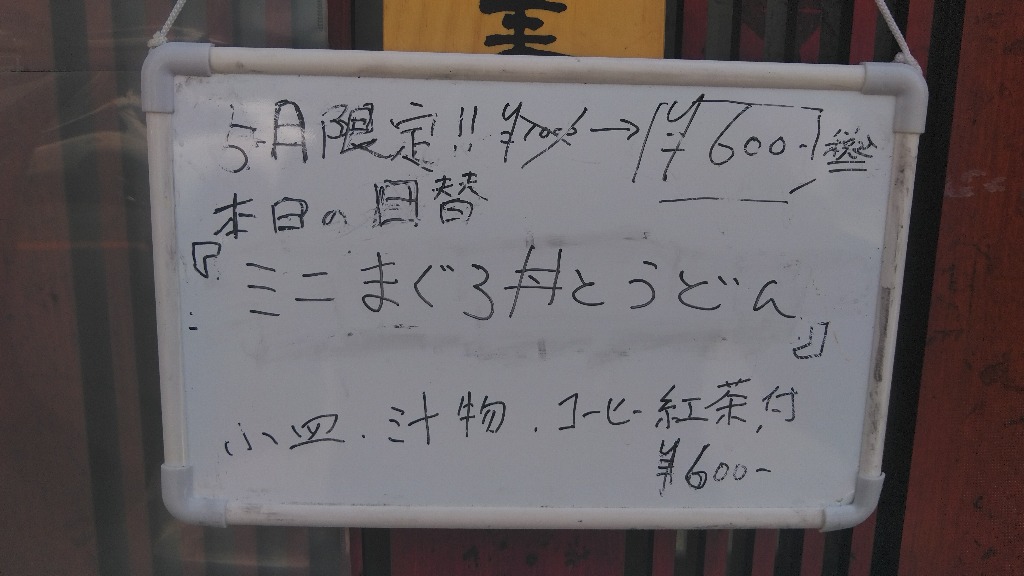 5月限定!! ¥700 → ¥600-
本日の日替
『ミニまぐろ丼とうどん』
小皿、汁物、コーヒー紅茶付
¥600-